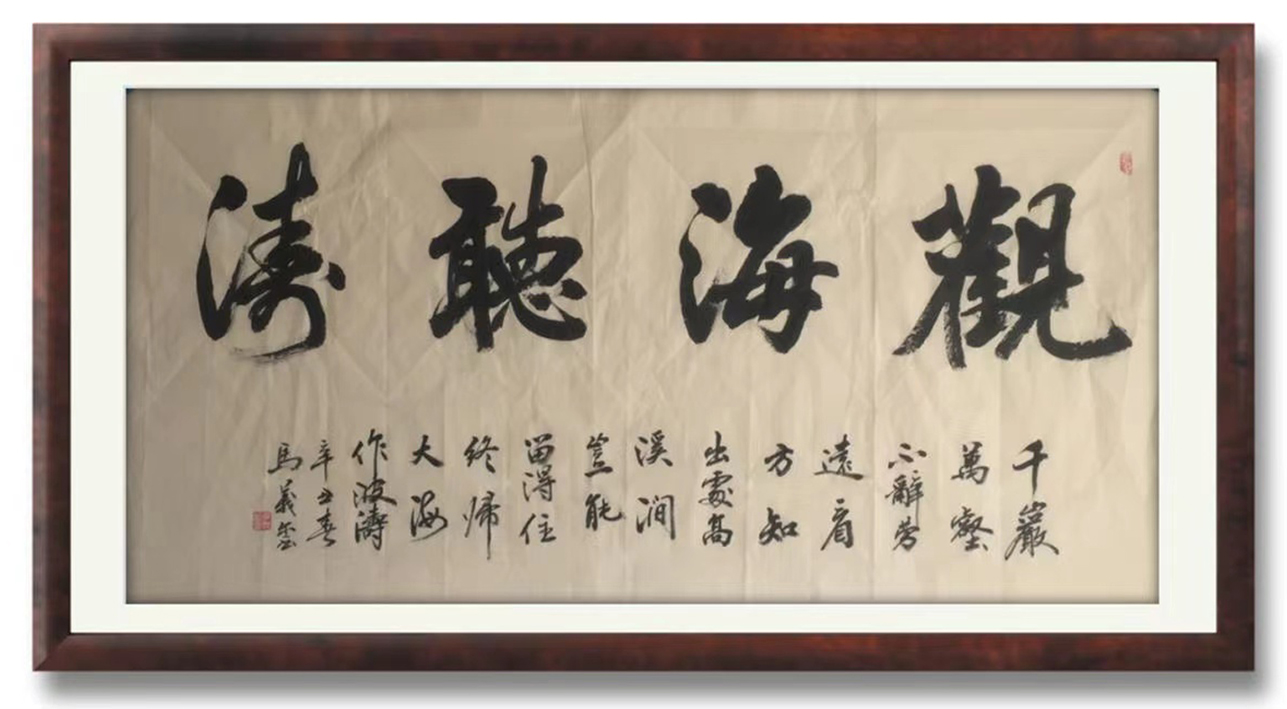 觀海聽濤
千巖
萬壑
不辭勞
遠看
方知
出處高
溪澗
豈能
留得住
終歸
大海
作波濤
辛丑春
馬義